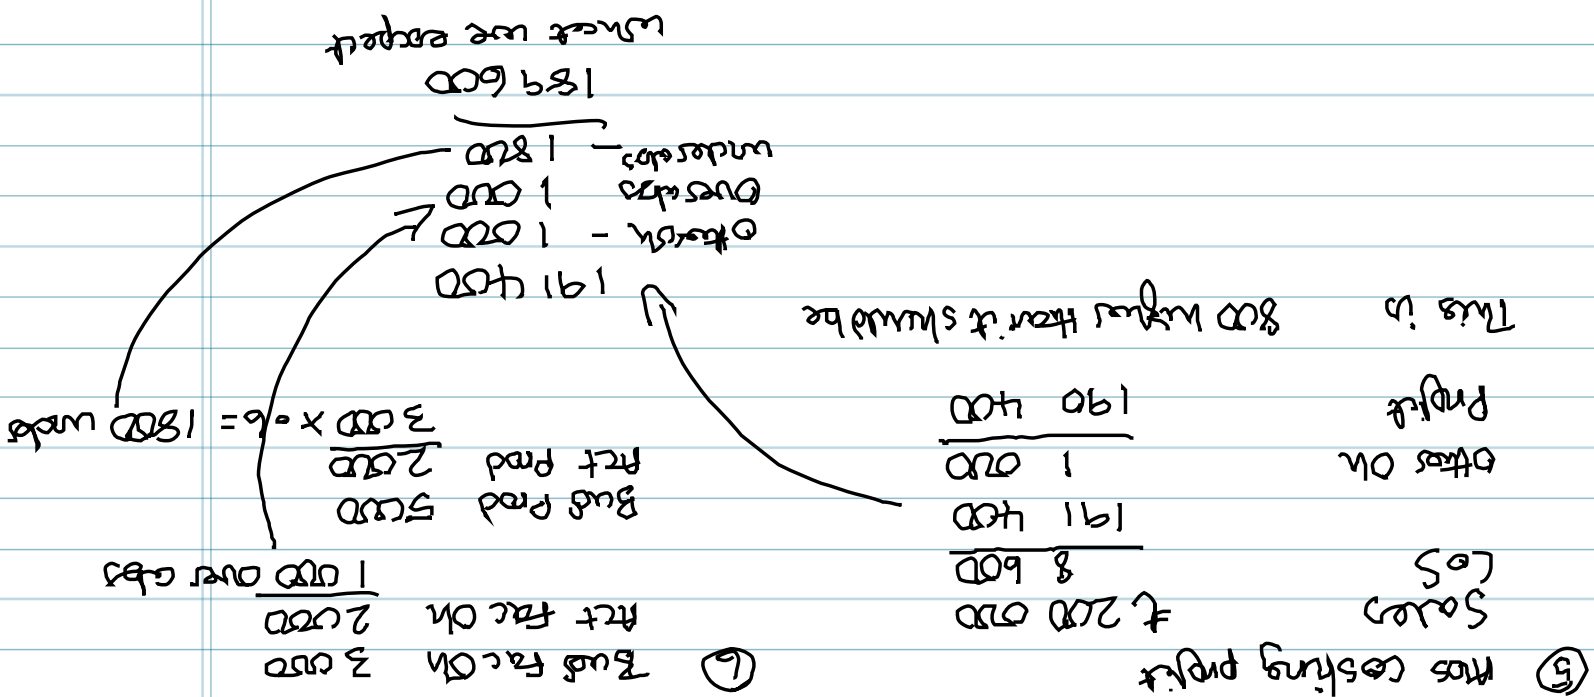 ⑤ Abs costing profit
Sales £200 000
COS 8 600
191 400
Other OH 1 000
Profit 190 400
This is 800 higher than it should be
⑥ Bud Fac OH 3 000
Act Fac OH 2 000
1 000 over abs
Bud Prod 5000
Act Prod 2000
3 000 x 0.6 = 1800
191 400
Other OH - 1 000
Over abs 1 000
under abs - 1 800
189 600
what we expect